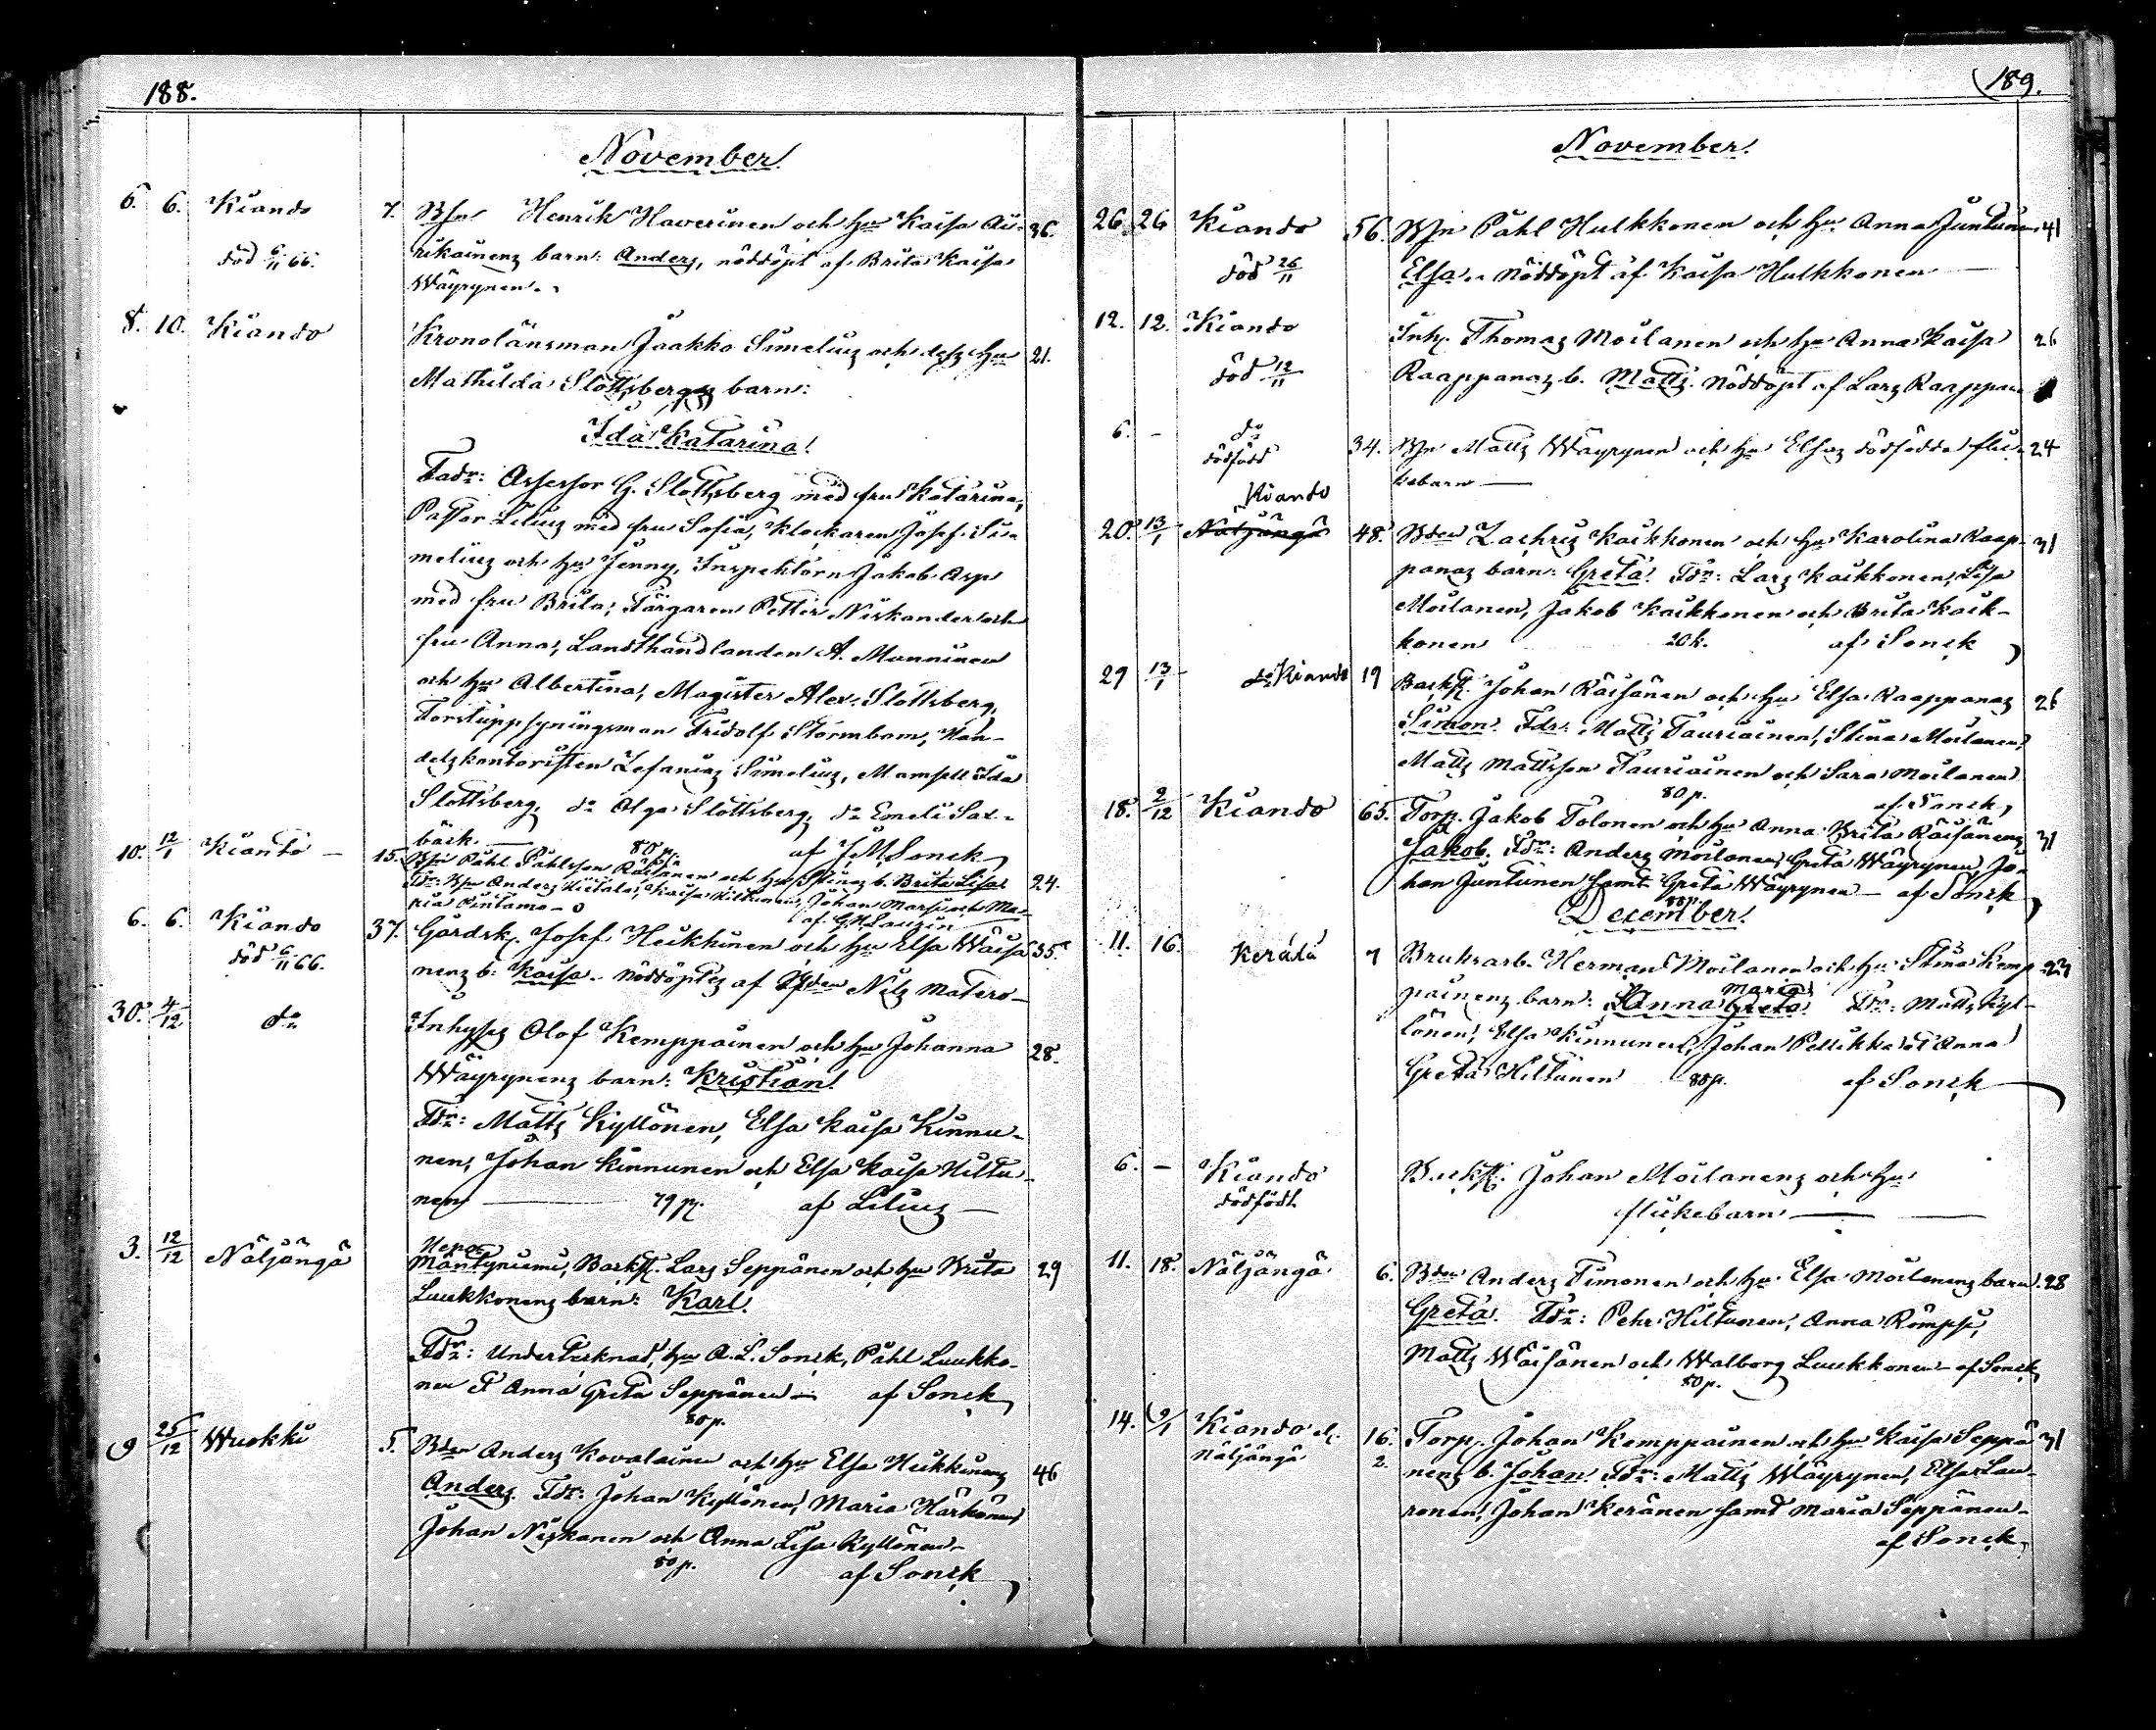 188.
November.
6. 6. Kiando 7. Bfn Henrik Haverinen och hu Kaisa Au- 36.
död 6/11 66. rikainens barn: Anders, nöddöpt af Brita Kaisa
Wäyrynen.
8. 10. Kiando Kronolänsman Jaakko Simelius och dess hu 21.
Mathilda Slottsbergs barn:
Ida Katarina!
Fadr: Assessor G. Slottsberg med fru Katarina,
Pastor Lilius med fru Sofia, Klockaren Josef Si-
melius och hu Jenny, Inspektorn Jakob Asp
med fru Brita, Färgaren Petter Niskander och
fru Anna, Landthandlanden A. Manninen
och hu Albertina, Magister Alex. Slottsberg,
Forstuppsyningsman Fridolf Stormbom, Han-
delskontoristen Zefanias Simelius, Mamsell Ida
Slottsberg, do Olga Slottsberg, do Emeli Sax-
bäck. 80 p. af J M Sonck
10. 12/1 Kianto 15. Bfn Påhl Påhlsson Räisänen och hu Stinas b. Brita Lisa 24.
Fdr: Anders Hietala, Kaisa Kiltunen, Johan Marsi och Ma-
ria Pintamo
6. 6. Kiando 37. Gårdsk. Josef Heikkinen och hu Elsa Wäisä- 35.
död 6/11 66. nens b: Kaisa. Nöddöptes af Nils Matero
30. 4/12 do Inhyses Olof Kemppainen och hu Johanna 28.
Wäyrynens barn: Kristian!
Fdr: Matts Kyllönen, Elsa Kaisa Kinnu-
nen, Johan Kinnunen och Elsa Kaisa Hiltu-
nen 79 p. af Lilius
3. 12/12 Näljängä Mäntyniemi, Backst. Lars Seppänen och hu Brita 29
Luukkonens barn: Karl.
Fdr: Undertecknad, hu A. L. Sonck, Påhl Luukko-
nen & Anna Greta Seppänen — af Sonck
80 p.
9 25/12 Wuokki 5. Bden Anders Kovalainen och hu Elsa Heikkinens 46
Anders. Fdr: Johan Kyllönen, Maria Härkönen
Johan Niskanen och Anna Lisa Kyllönen
80 p. af Sonck
189.
November.
26. 26 Kiando 56. Bfn Påhl Hulkkonen och hu Anna Juntunens 41
död 26/11 Elsa. Nöddöpt af Kaisa Hulkkonen
12. 12. Kiando Inh. Thomas Moilanen och hu Anna Kaisa 26
död 12/11 Raappanas b. Matts. Nöddöpt af Lars Raappana
6. - do 34. Bfn Matts Wäyrynen och hu Elsas dödfödda flic- 24
dödfödd kebarn
Kiando
20. 13/1 Näljängä 48. Bden Zachris Kaikkonen och hu Karolina Raap- 31
panas barn: Greta. Fdr: Lars Kaikkonen, Lisa
Moilanen, Jakob Kaikkonen och Brita Kaik-
konen 20 k. af Sonck
29 13/1 do Kiando 19 Backst. Johan Räisänen och hu Elsa Raappanas 26
Simon. Fdr: Matts Tauriainen, Stina Moilanen
Matts Mattsson Tauriainen och Sara Moilanen
80 p. af Sonck
18. 2/12 Kiando 65. Torp. Jakob Tolonen och hu Anna Brita Räisänens 31
Jakob. Fdr: Anders Moilanen, Greta Wäyrynen, Jo-
han Juntunen samt Greta Wäyrynen — af Sonck
80 p.
December.
11. 16. Kerälä 7 Bruksarb. Herman Moilanen och hu Stina Kemp- 23
Maria
painens barn: Anna Greta Fdr: Matts Kyl-
lönen, Elsa Kinnunen, Johan Pellikka & Anna
Greta Hiltunen 80 p. af Sonck
6. - Kiando Backst. Johan Moilanens och hu
dödfödt flickebarn
11. 18. Näljängä 6. Bden Anders Timonen och hu Elsa Moilanens barn. 28
Greta. Fdr: Pehr Hiltunen, Anna Römpsi,
Matts Wäisänen och Walborg Luukkonen — af Sonck
80 p.
14. 9/1 Kiando el. 16. Torp. Johan Kemppainen och hu Kaisa Seppä- 31
Näljängä 2. nens b. Johan. Fdr: Matts Wäyrynen, Elsa Lau-
ronen, Johan Keränen samt Maria Seppänen
af Sonck